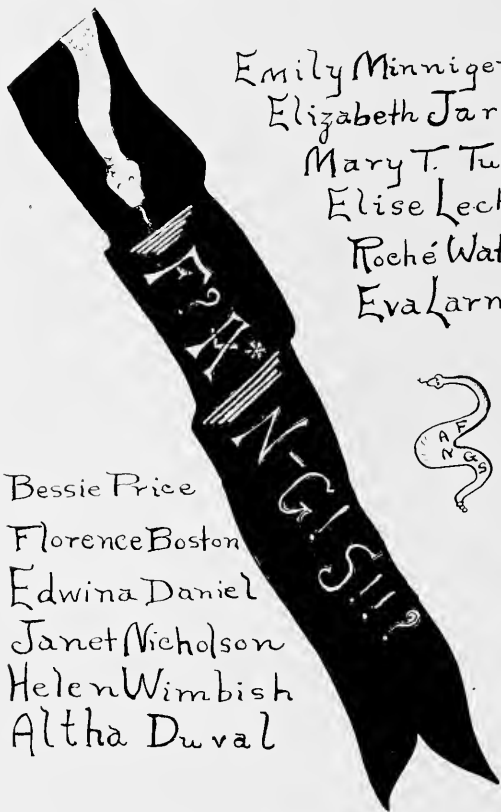 Emily Minniger
Elizabeth Jar
Mary T. Tu
Elise Lech
Roché Wat
Eva Larn
F?A*N-G!S!!?
FANGS
Bessie Price
Florence Boston
Edwina Daniel
Janet Nicholson
Helen Wimbish
Altha Duval